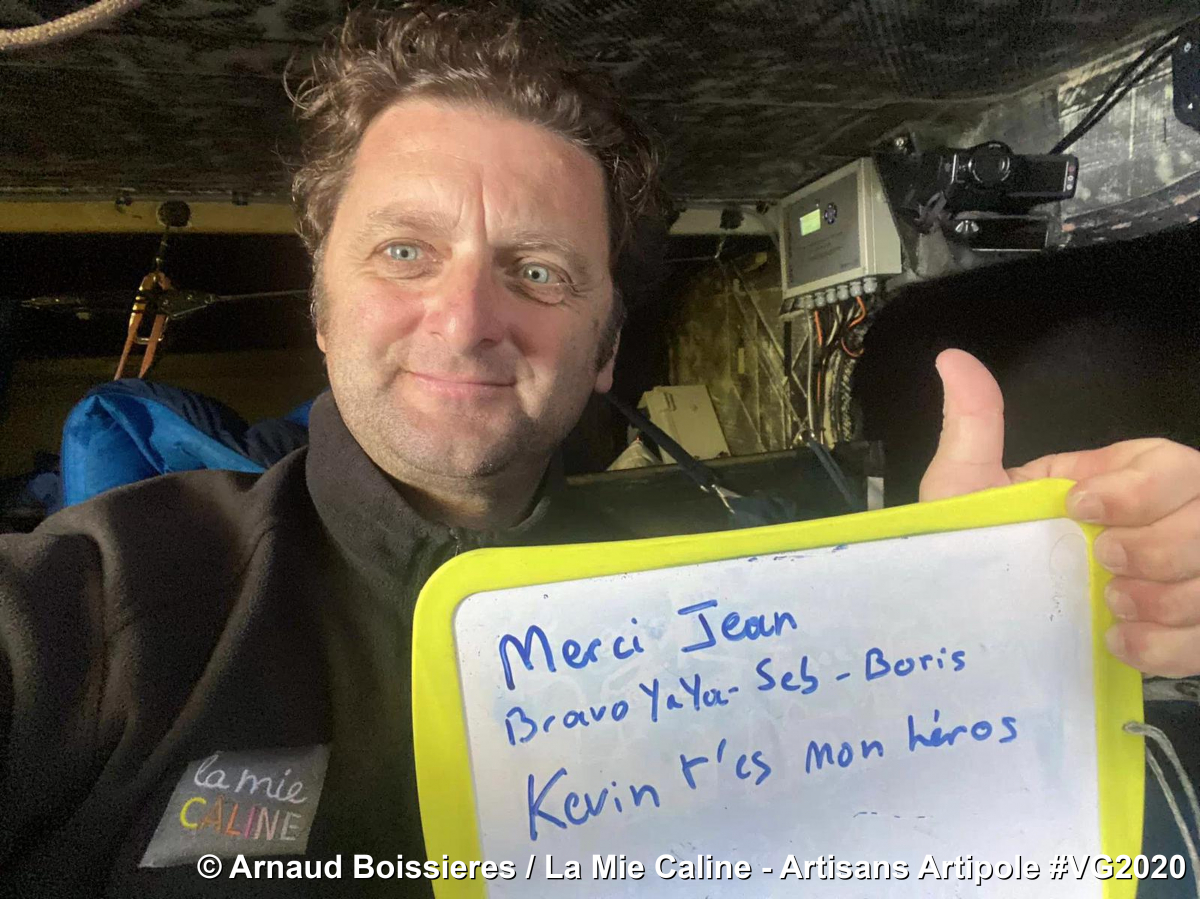 Merci Jean
Bravo YaYa - Seb - Boris
Kevin t'es mon héros
la mie
CÂLINE
© Arnaud Boissieres / La Mie Caline - Artisans Artipole #VG2020